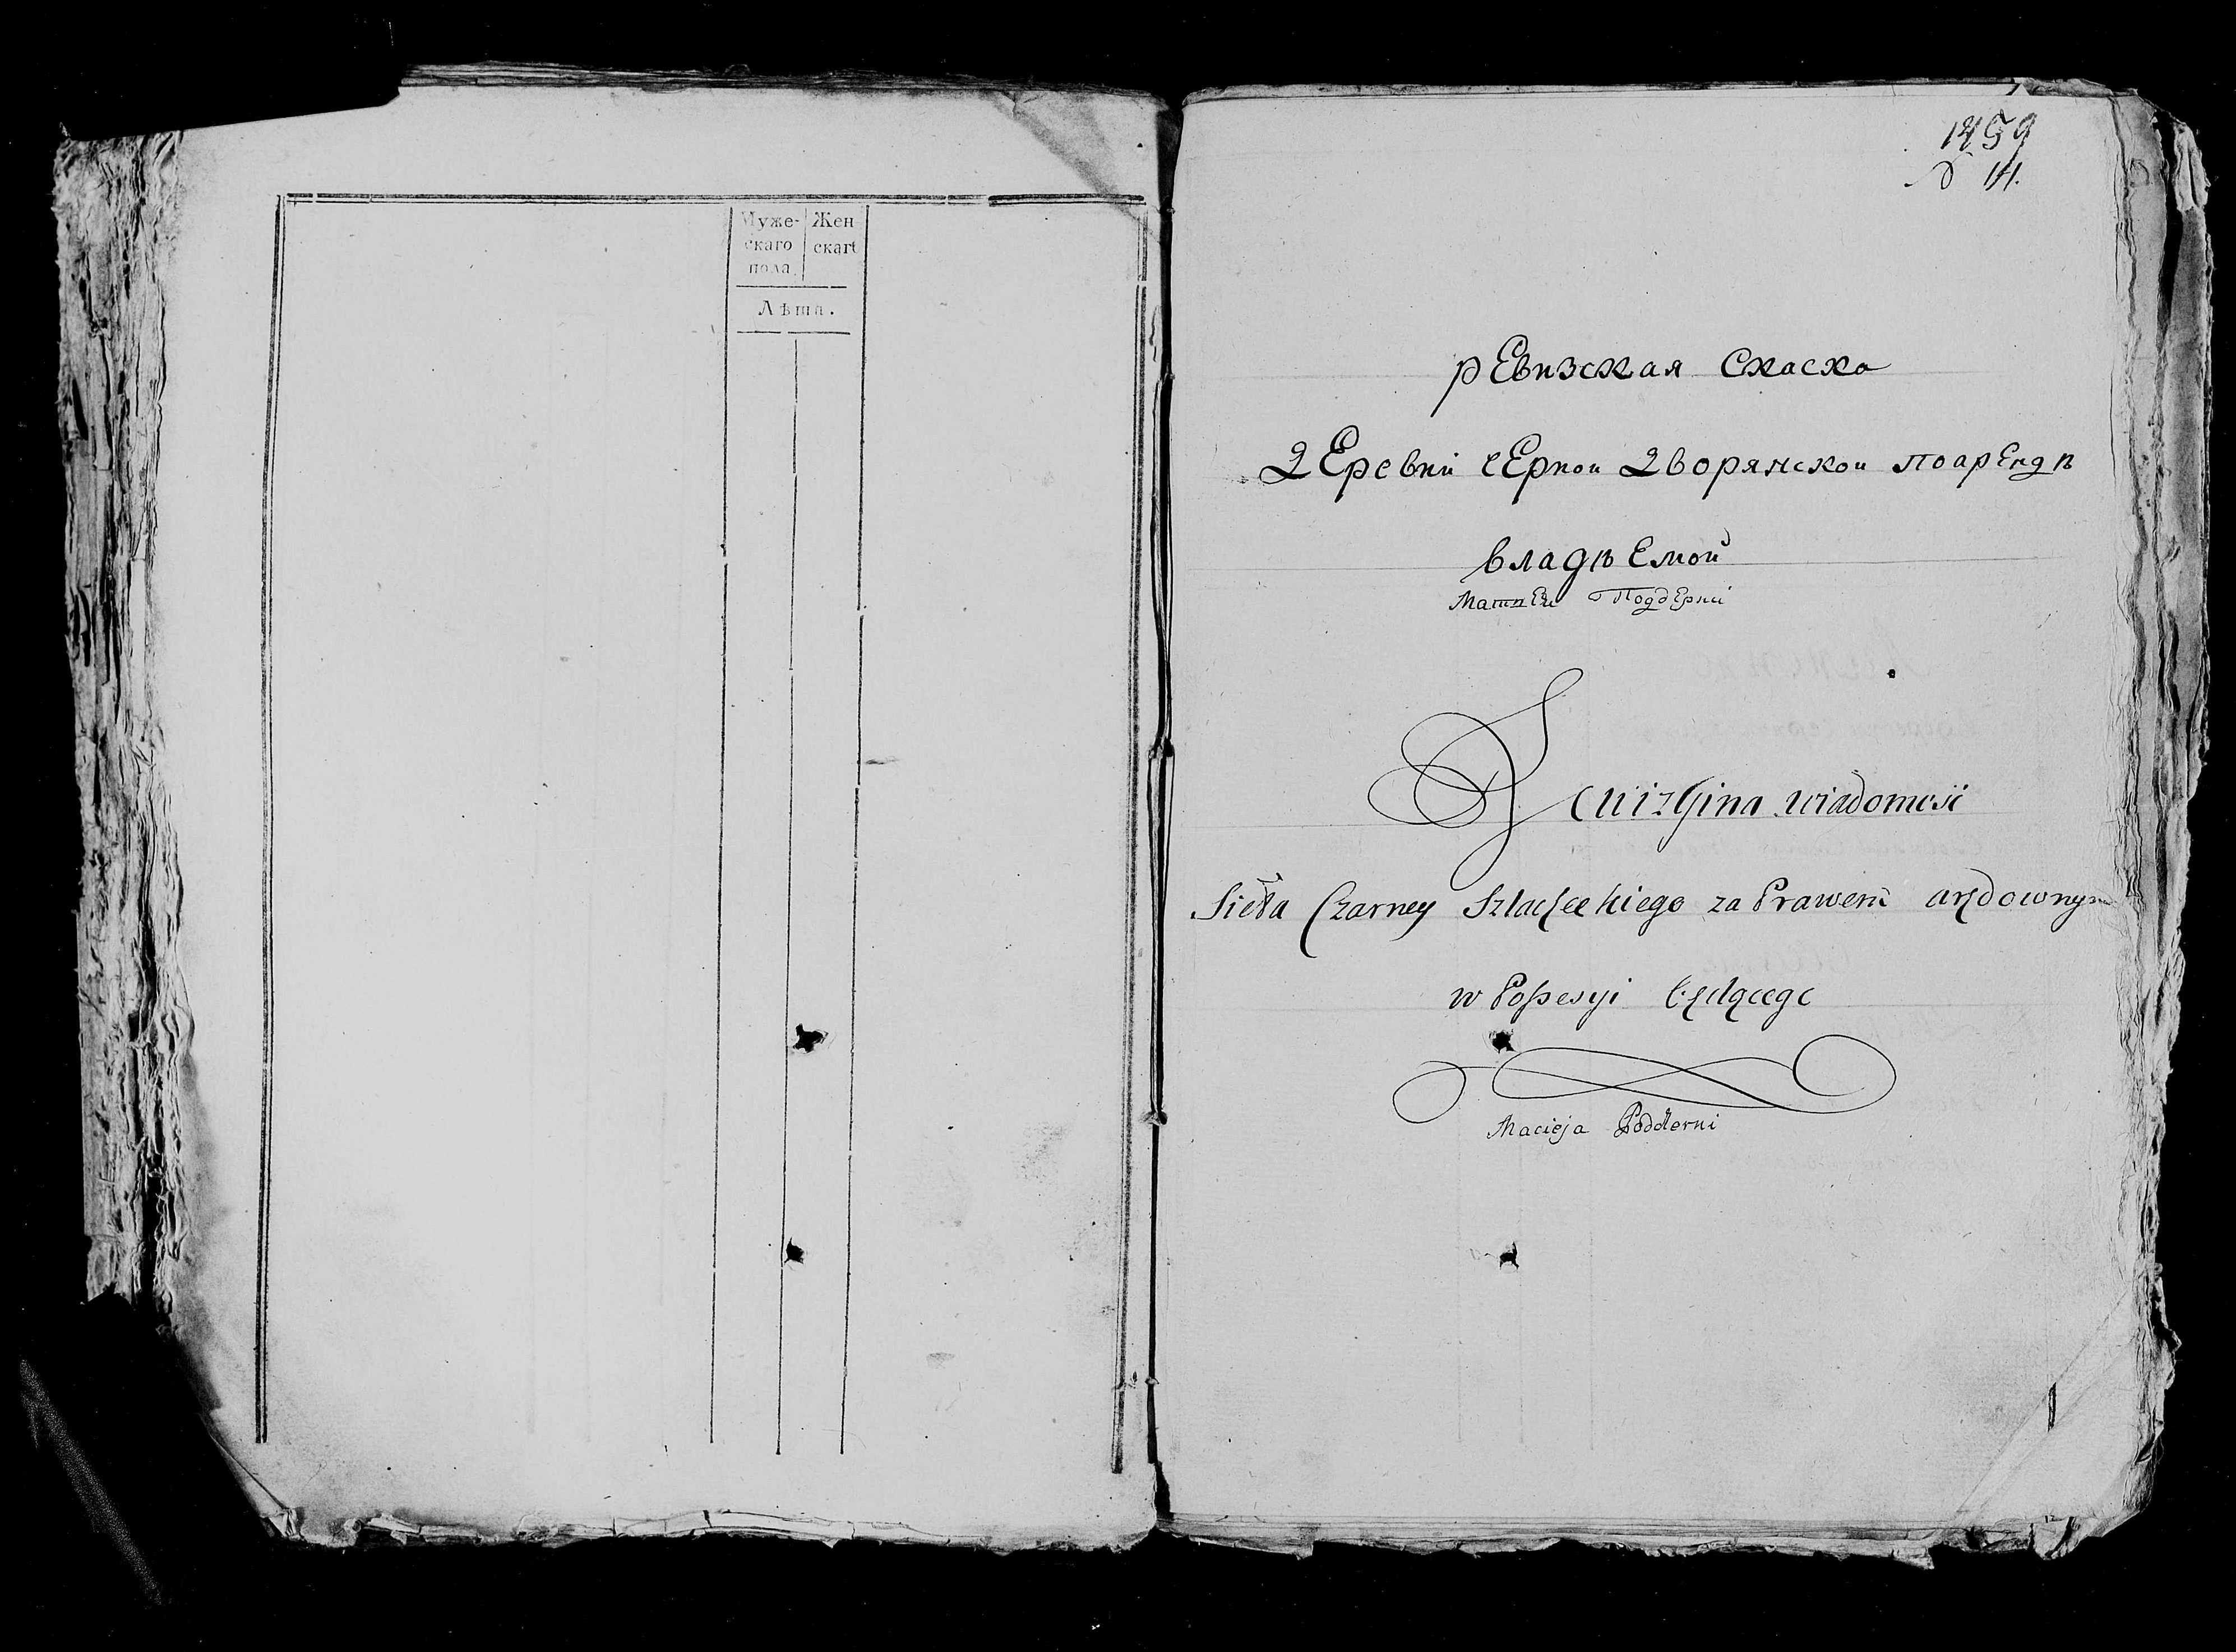 Муже- Жен
скаго скаг
пола.
Лѣта.
1459
№ 14.
рЕвизская Скаска
ДЕревни чЕрной Дворянской поарЕндѣ
владѣЕмой
МатвЕя ПоддЕрни
Rewizyina wiadomość
Sieła Czarney Szlacheckiego za Prawem arędownym
w Possesyi będącego
Macieja Podderni